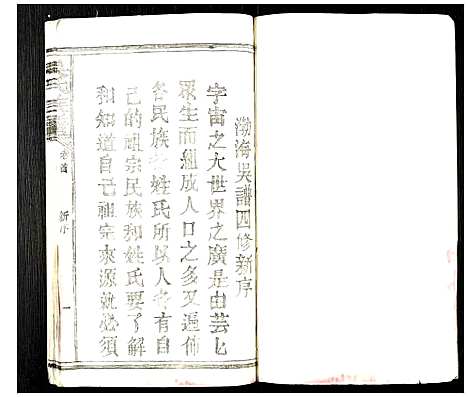 渤海吳譜四修新序
宇宙之大世界之廣是由芸匕
眾生而組成人口之多又遍佈
各民族 姓氏所以人各有自
己的祖宗民族和姓氏要了解
和知道自己祖宗來源就必須
卷首
新序
一